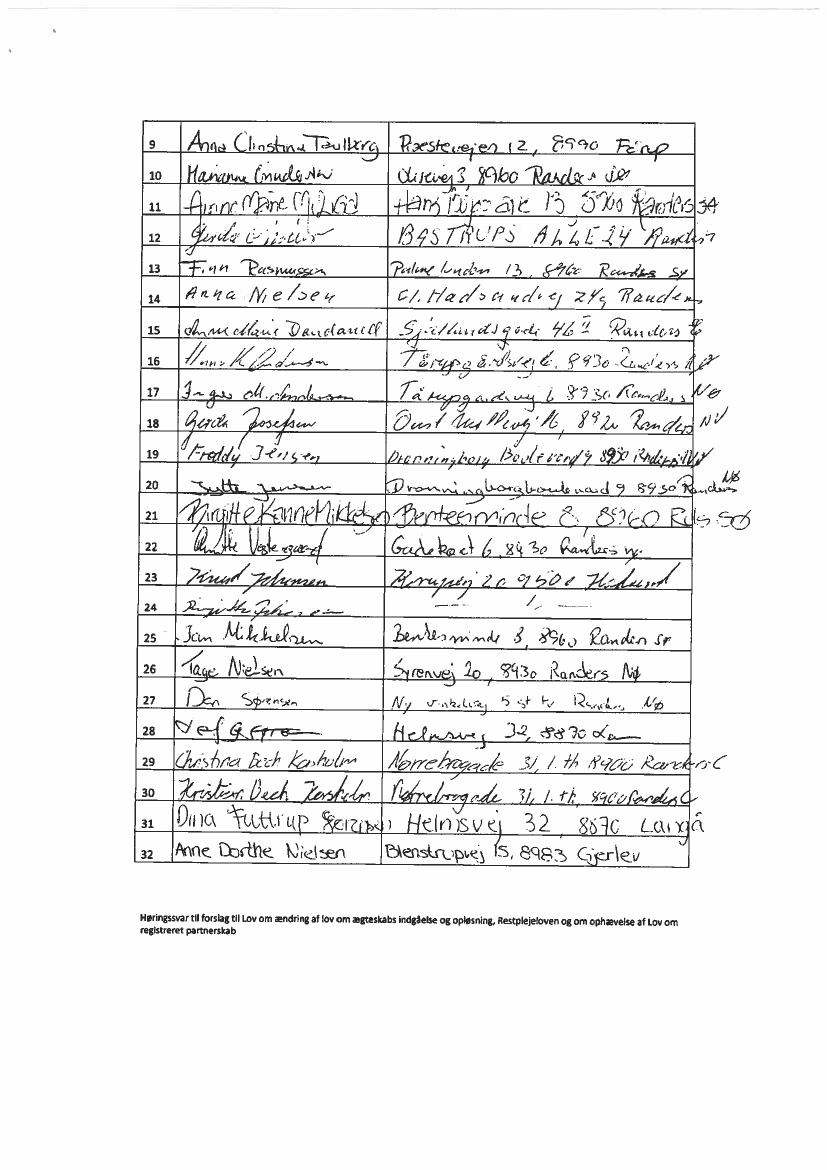 9 Anna Christina Taulberg Præstevejen 12, 8990 Fårup
10 Marianne 3, 8960 Randers
11 Anne Marie 13, 8960 Randers SØ
12 Gerda BASTRUPS ALLE 24 Randers
13 Finn Rasmussen 13, 8960 Randers SØ
14 Anna Nielsen Gl. Hadsundvej 249 Randers
15 Anne Marie Dandanell Sjællandsgade 46 II Randers C
16 Hans K Andersen Tårupgårdsvej 6, 8930 Randers NØ
17 Inger M. Andersen Tårupgårdsvej 6 8930 Randers NØ
18 Gerda Josefsen Oust Møllevej 16, 8920 Randers NV
19 Freddy Jensen Dronningborg Boulevard 9 8930 Randers NØ
20 Jytte Jensen Dronningborgboulevard 9 8930 Randers NØ
21 Birgitte Kanne Mikkelsen Bentesminde 8, 8960 Rds SØ
22 Vestergaard 6, 8930 Randers
23 Knud Johansen 20 9500 Hobro
24 Birgitte — 〃 —
25 Jan Mikkelsen Bentesminde 8, 8960 Randers SØ
26 Tage Nielsen Syrenvej 20, 8930 Randers NØ
27 Dan Sørensen Ny 5 st tv Randers NØ
28 Helmsvej 32, 8870
29 Christina Bech Korsholm Nørrebrogade 31, 1. th 8900 Randers C
30 Kristian Bech Korsholm Nørrebrogade 31, 1. th, 8900 Randers C
31 Dina Futtrup Helmsvej 32, 8870 Langå
32 Anne Dorthe Nielsen Blenstrupvej 15, 8983 Gjerlev
Høringssvar til forslag til Lov om ændring af lov om ægteskabs indgåelse og opløsning, Restplejeloven og om ophævelse af Lov om
registreret partnerskab